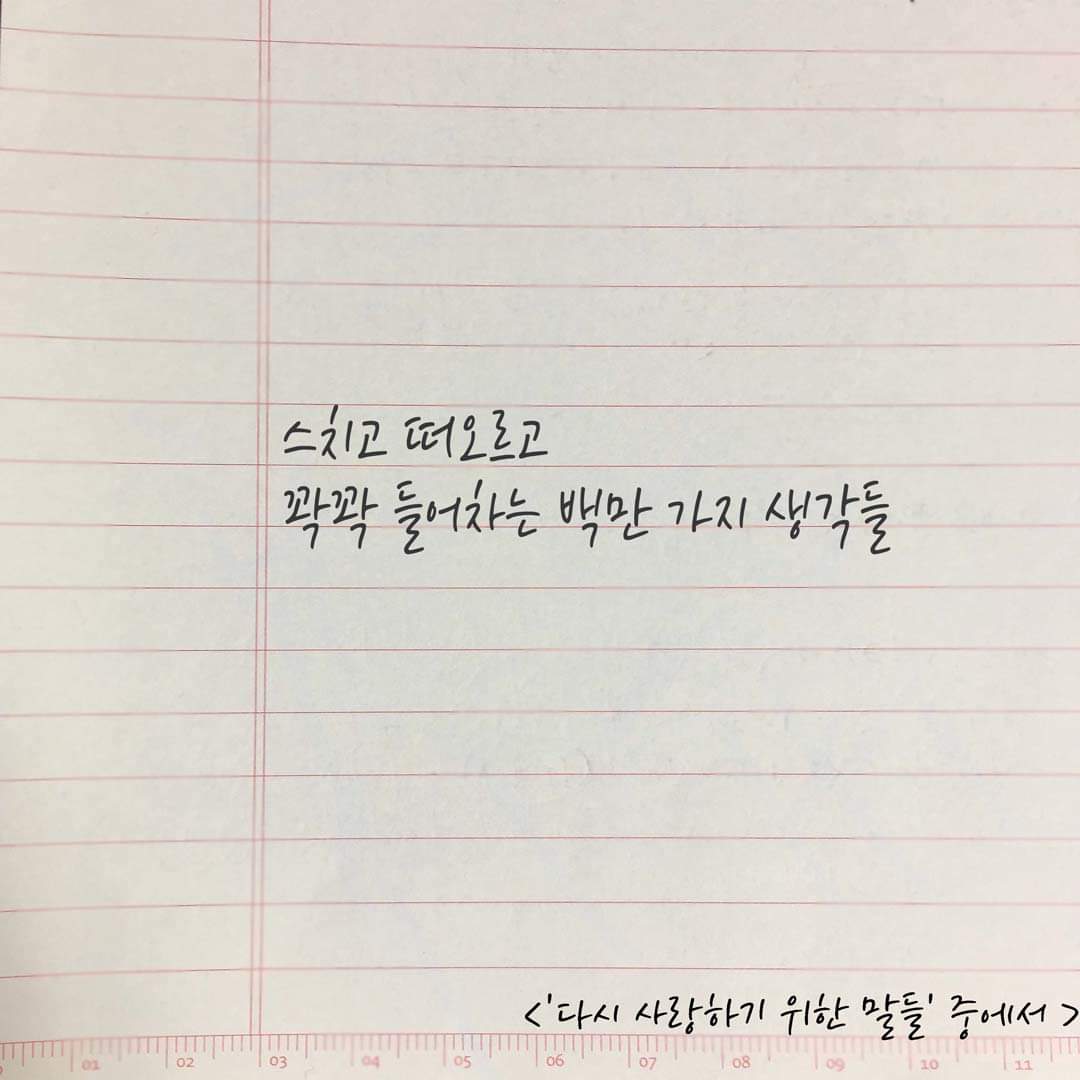 스치고 떠오르고
꽉꽉 들어차는 백만 가지 생각들
<'다시 사랑하기 위한 말들' 중에서 >
01 02 03 04 05 06 07 08 09 10 11